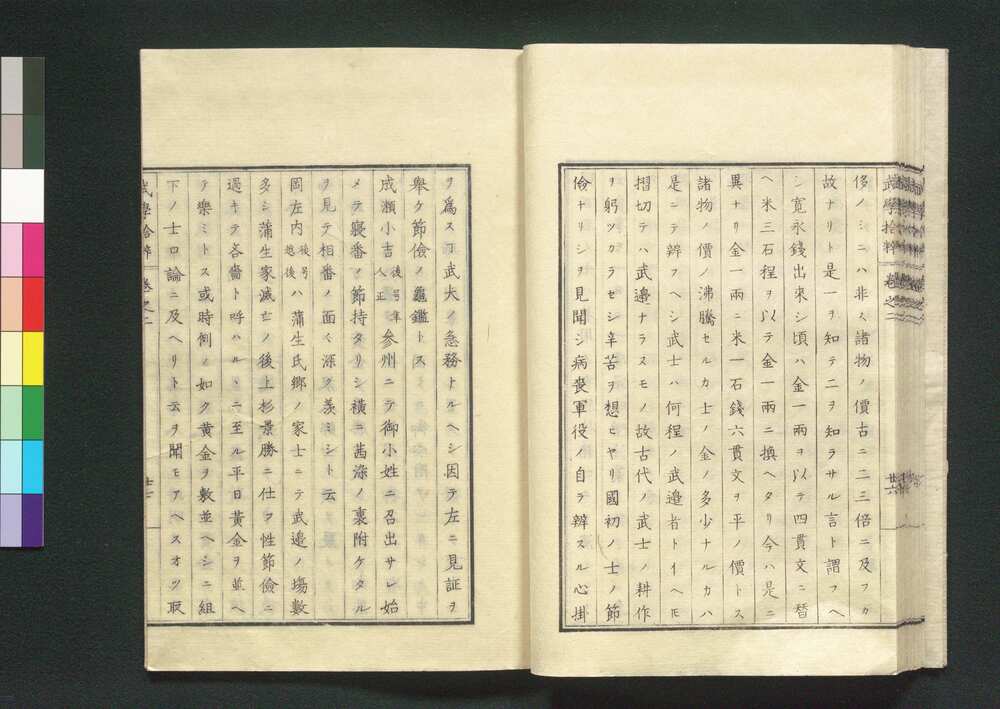 武學拾粹 卷之二
侈ノミニハ非ス諸物ノ價古ニ二三倍ニ及フカ
故ナリト是一ヲ知テ二ヲ知ラサル言ト謂フヘ
シ寛永錢出來シ頃ハ金一兩ヲ以テ四貫文ニ替
ヘ米三石程ヲ以テ金一兩ニ換ヘタリ今ハ是ニ
異ナリ金一兩ニ米一石錢六貫文ヲ平ノ價トス
諸物ノ價ノ沸騰セルカ士ノ金ノ多少ナルカハ
是ニテ辨フヘシ武士ハ何程ノ武邉者トイヘ𪜈
摺切テハ武邉ナラスモノ故古代ノ武士ノ耕作
ヲ躬ツカラセシ辛苦ヲ想ヒヤリ國初ノ士ノ節
儉ナリシヲ見聞シ病喪軍役ノ自ラ辨スル心掛
ヲ爲スヿ武夫ノ急務トルヘシ因テ左ニ見証ヲ
舉ケ節儉ノ龜鑑トス
成瀬小吉後号隼人正参州ニテ御小姓ニ召出サレ始
メテ寢番ノ節持タリシ襖ニ茜染ノ裏附ケタル
ヲ見テ相番ノ面〻深ク羨ミシト云
岡左内後号越後ハ蒲生氏郷ノ家士ニテ武邉ノ塲數
多シ蒲生家滅亡ノ後上杉景勝ニ仕フ性節儉ニ
過キテ吝嗇ト呼ハルヽニ至ル平日黄金ヲ並ヘ
テ樂ミトス或時例ノ如ク黄金ヲ數並ヘシニ組
下ノ士口論ニ及ヘリト云ヲ聞モアヘスオツ取
武學拾粹 卷之二